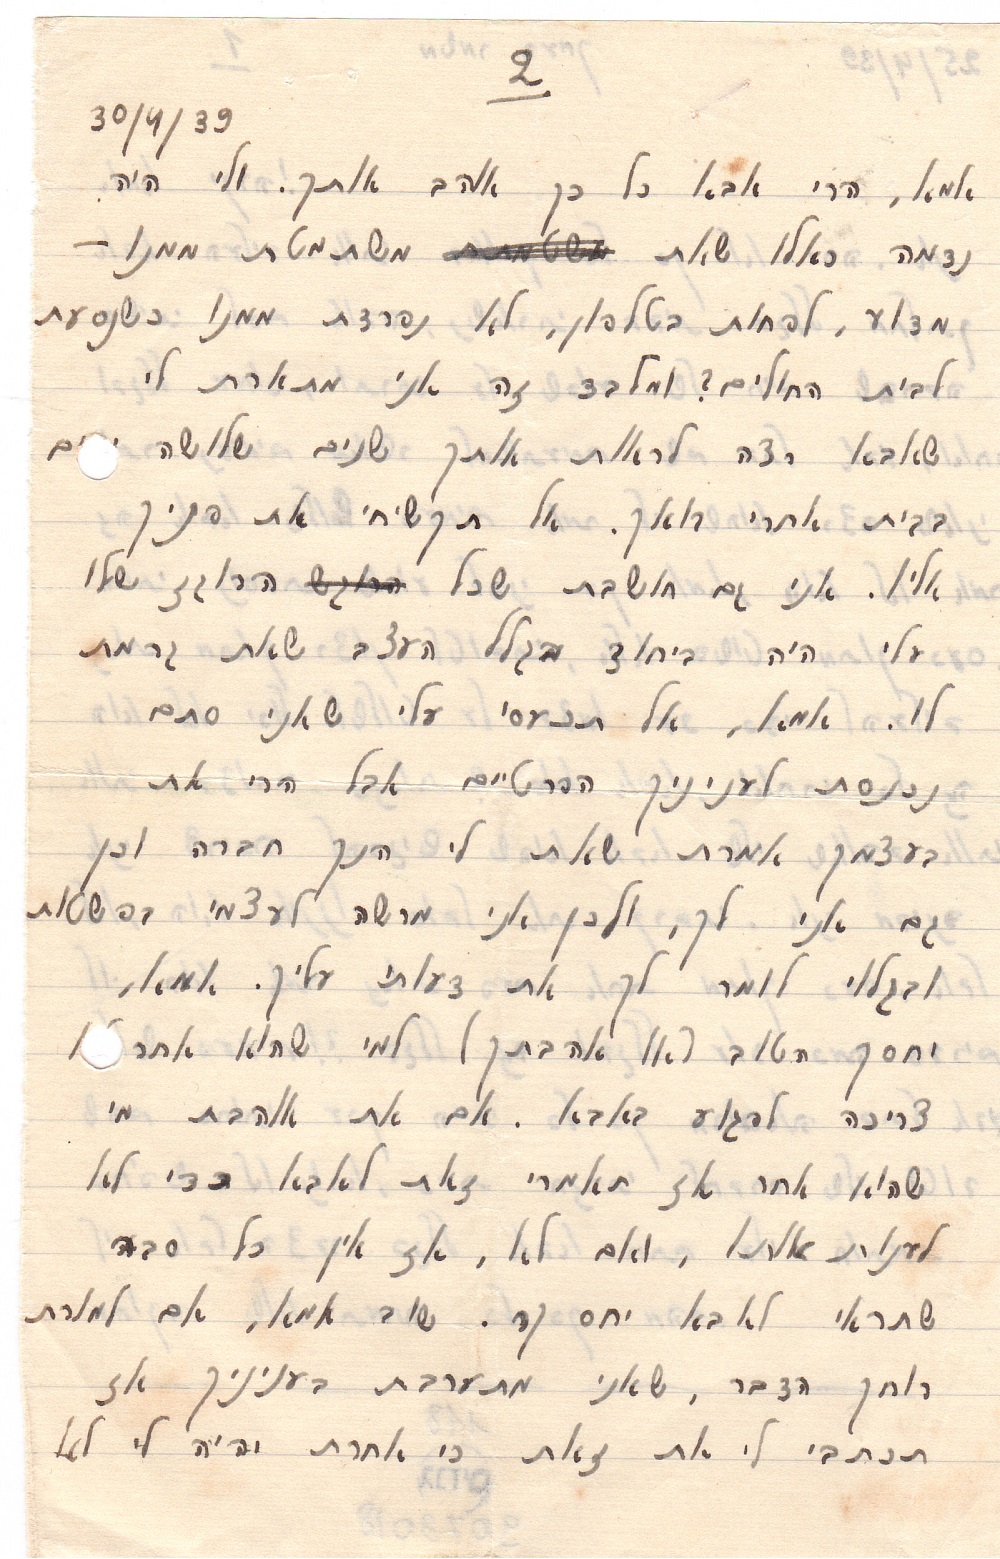 2
30/4/39
אמא, הרי אבא כל כך אוהב אותך. ולי היה
נדמה כאלו שאת משתמטת ממנו –
מדוע, לפחות בטלפון, לא נפרדת ממנו כשנסעת
לבית החולים? ומלבד זה אני מתארת לי
שאבא רצה לראות אותך שנים שלושה ימים
בבית אחרי בואך. אל תקשיחי את פניך
אליו. אני גם חושבת שכל הרוגש הרוגז שלו
עלי היה ביחוד בגלל העצב שאת גרמת
לו. אמא, אל תכעסי עלי שאני סתם
נכנסת לעניניך הפרטיים אבל הרי את
בעצמך אמרת שאת לי הנך חברה וכן
גם אני לך, ולכן אני מרשה לעצמי בפשטות
ובגלוי לומר לך את דעותי עליך. אמא,
יחסך הטוב (או אהבתך) למי שהוא אחר לא
צריכה לפגוע באבא. אם את אוהבת מי
שהוא אחר אז תאמרי זאת לאבא כדי לא
לענות אותו, ואם לא, אז אין כל סבה
שתראי לאבא יחס קר. שוב אמא, אם למורת
רוחך הדבר, שאני מתערבת בעניניך אז
תכתבי לי את זאת כי אחרת יהיה לי לא